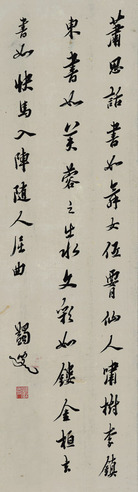 蕭思話書如舞女低腰仙人嘯樹李鎮
東書如芙蓉之出水文彩如鏤金桓玄
書如快馬入陣隨人屈曲